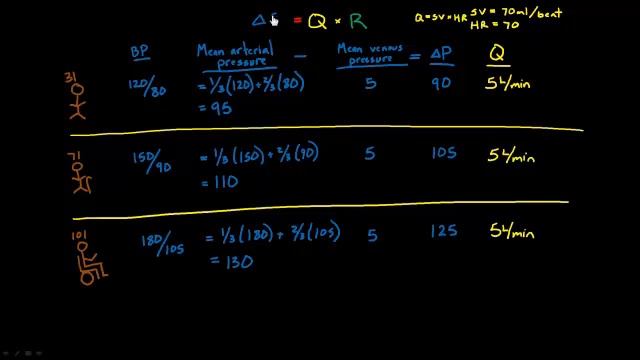 Δ = Q × R
Q = SV × HR SV = 70ml/beat
HR = 70
BP Mean arterial pressure − Mean venous pressure = ΔP Q
31 120/80 = 1/3(120) + 2/3(80) 5 90 5 L/min
= 95
71 150/90 = 1/3(150) + 2/3(90) 5 105 5 L/min
= 110
101 180/105 = 1/3(180) + 2/3(105) 5 125 5 L/min
= 130